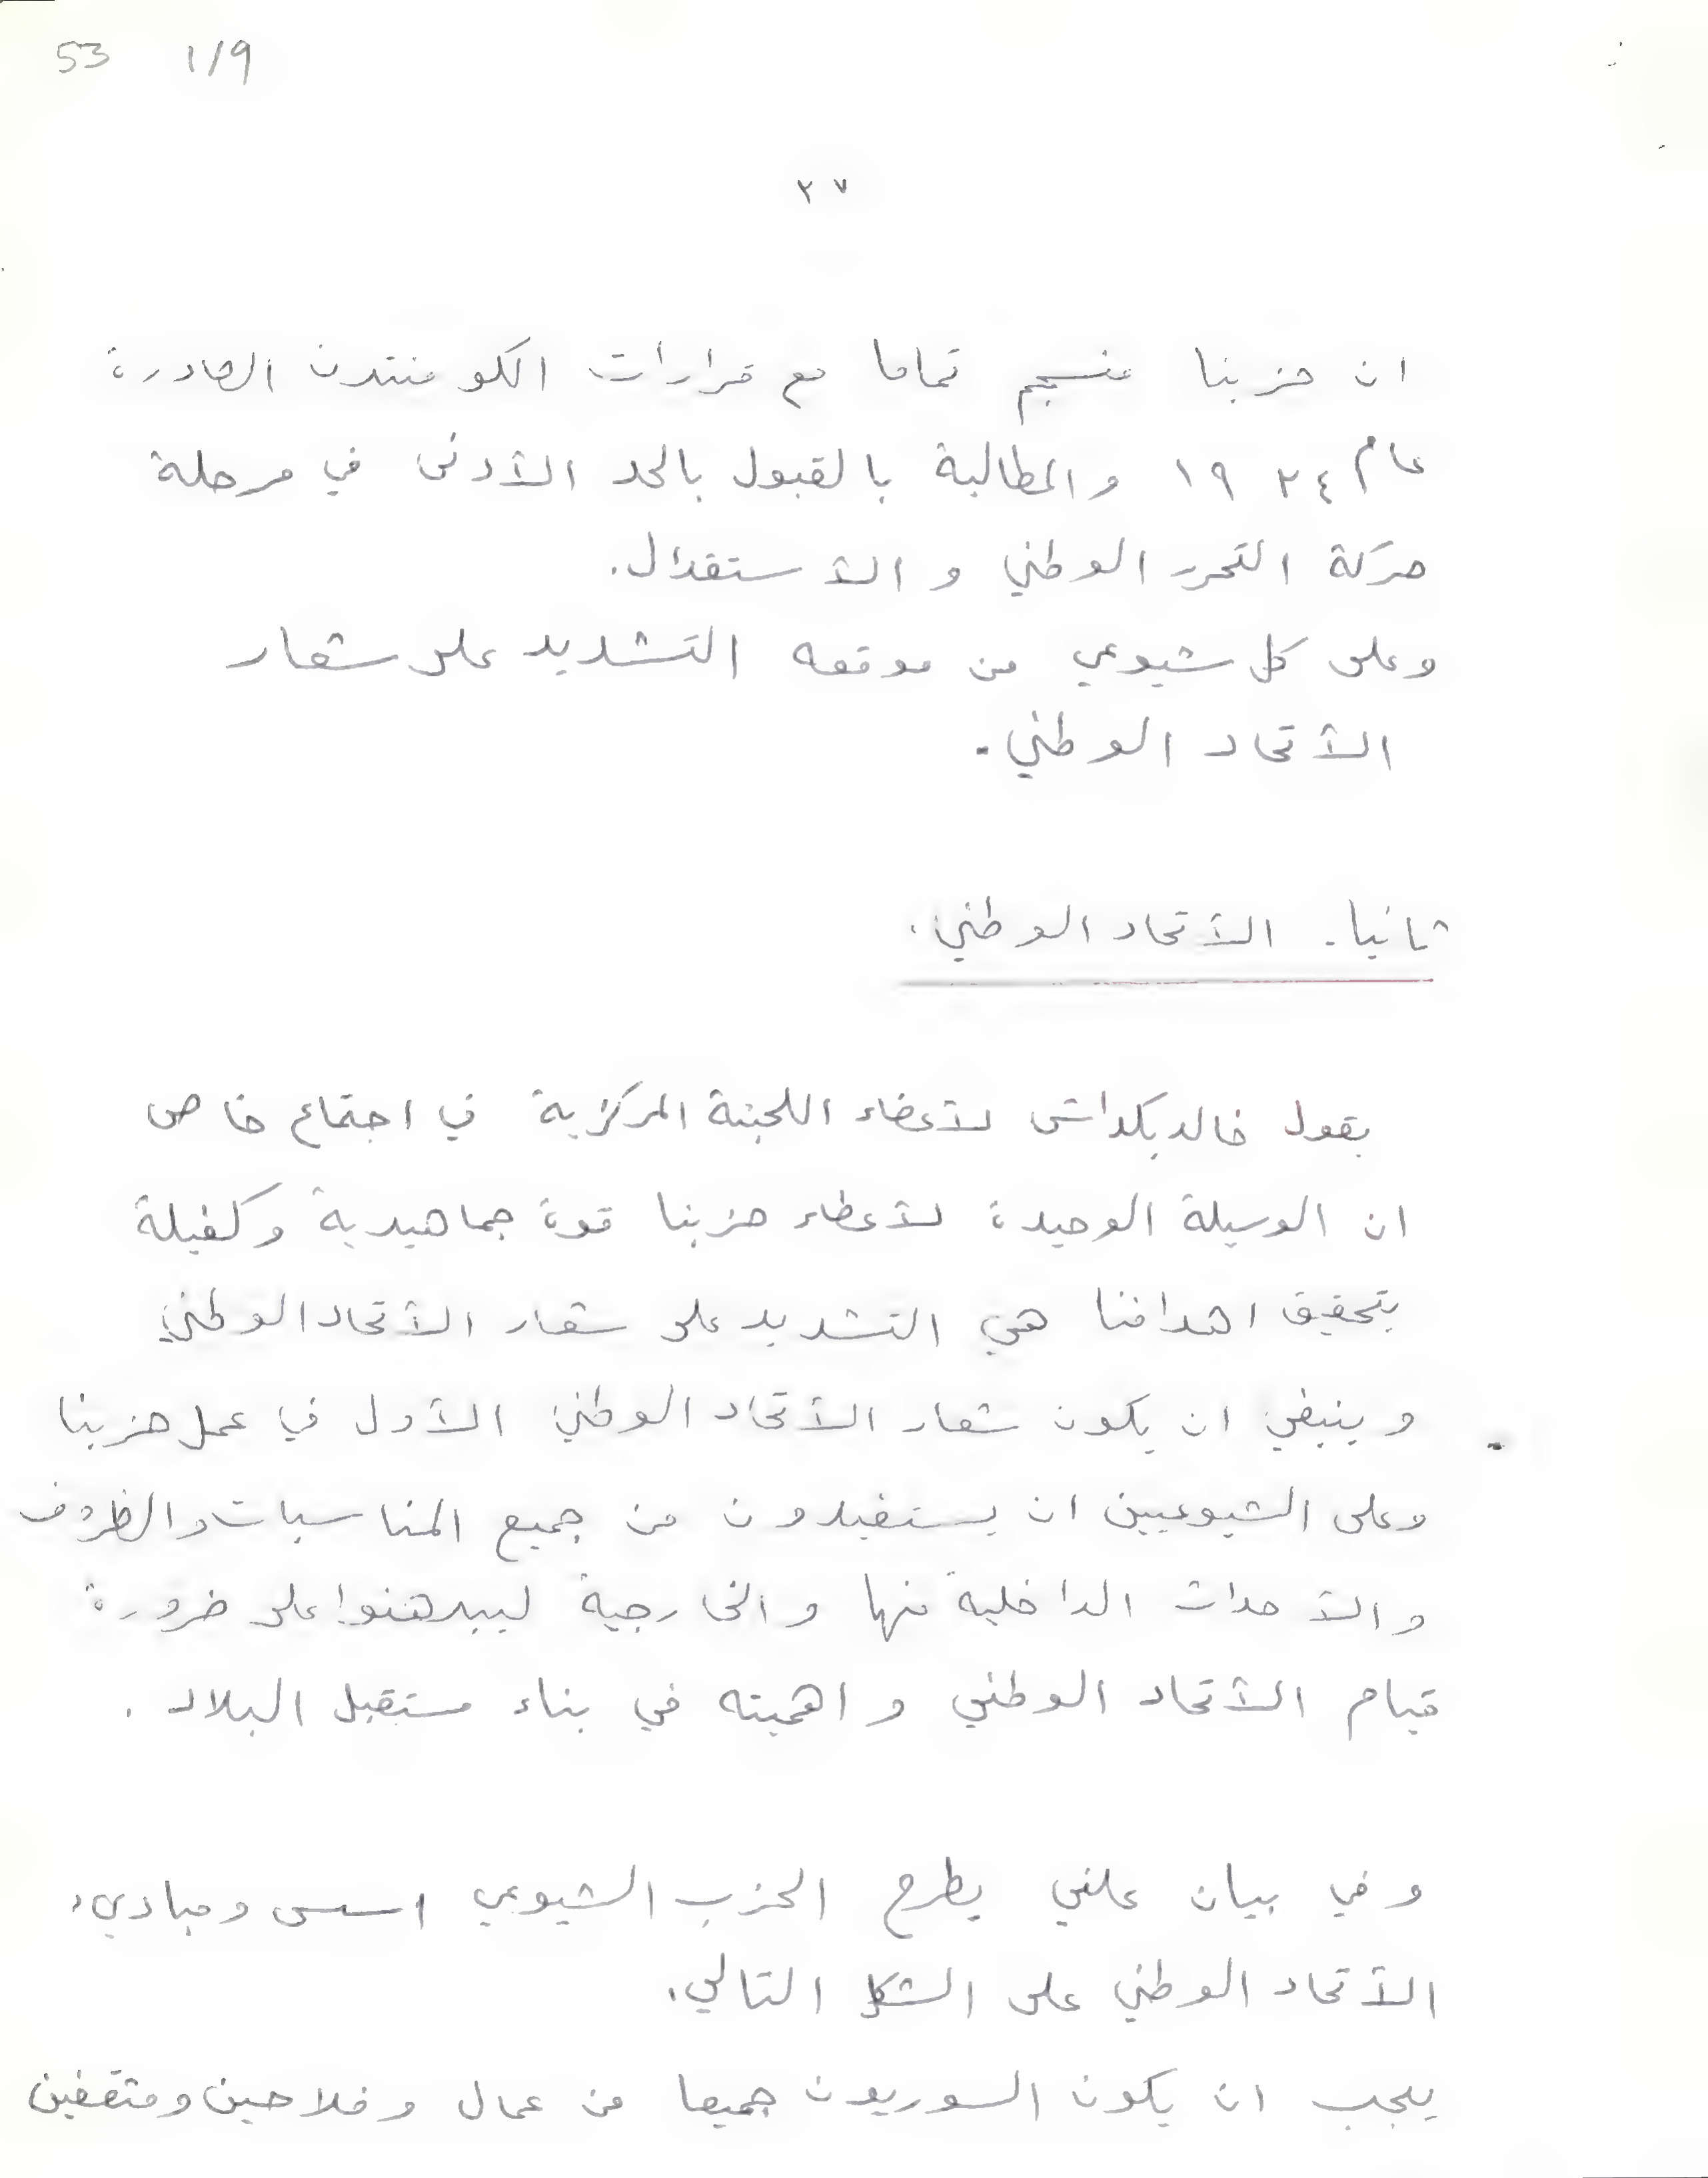 53 1/9
٢٧
ان حزبنا منسجم تماما مع قرارات الكومنترن الصادرة
عام ١٩٢٤ والمطالبة بالقبول بالحد الأدنى في مرحلة
حركة التحرر الوطني والأستقلال.
وعلى كل شيوعي من موقعه التشديد على شعار
الأتحاد الوطني.
ثانيا- الأتحاد الوطني.
يقول خالد بكداش لأعضاء اللجنة المركزية في اجتماع خاص
ان الوسيلة الوحيدة لأعطاء حزبنا قوة جماهيرية وكفيلة
بتحقيق اهدافنا هي التشديد على شعار الأتحاد الوطني
وينبغي ان يكون شعار الأتحاد الوطني الأول في عمل حزبنا
وعلى الشيوعيين ان يستفيدون من جميع المناسبات والظروف
والأحداث الداخلية منها والخارجية ليبرهنوا على ضرورة
قيام الأتحاد الوطني واهميته في بناء مستقبل البلاد.
وفي بيان علني يطرح الحزب الشيوعي اسس ومباديء
الأتحاد الوطني على الشكل التالي.
يجب ان يكون السوريون جميعا من عمال وفلاحين ومثقفين